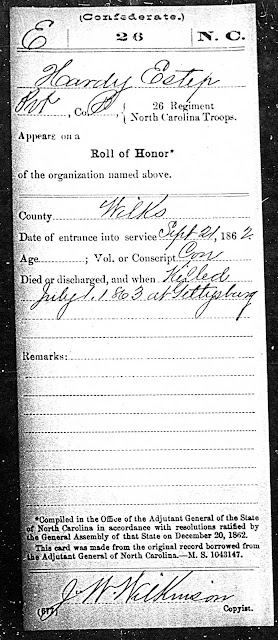 (Confederate.)
E 26 N. C.
Hardy Estep
Pvt, Co. , 26 Regiment
North Carolina Troops.
Appears on a
Roll of Honor*
of the organization named above.
County Wilks
Date of entrance into service Sept 21, 1862.
Age ; Vol. or Conscript Con
Died or discharged, and when Killed
July 1. 1863 at Gettysburg
Remarks:
*Compiled in the Office of the Adjutant General of the State
of North Carolina in accordance with resolutions ratified by
the General Assembly of that State on December 20, 1862.
This card was made from the original record borrowed from
the Adjutant General of North Carolina.—M. S. 1043147.
J W Wilkinson
(577) Copyist.